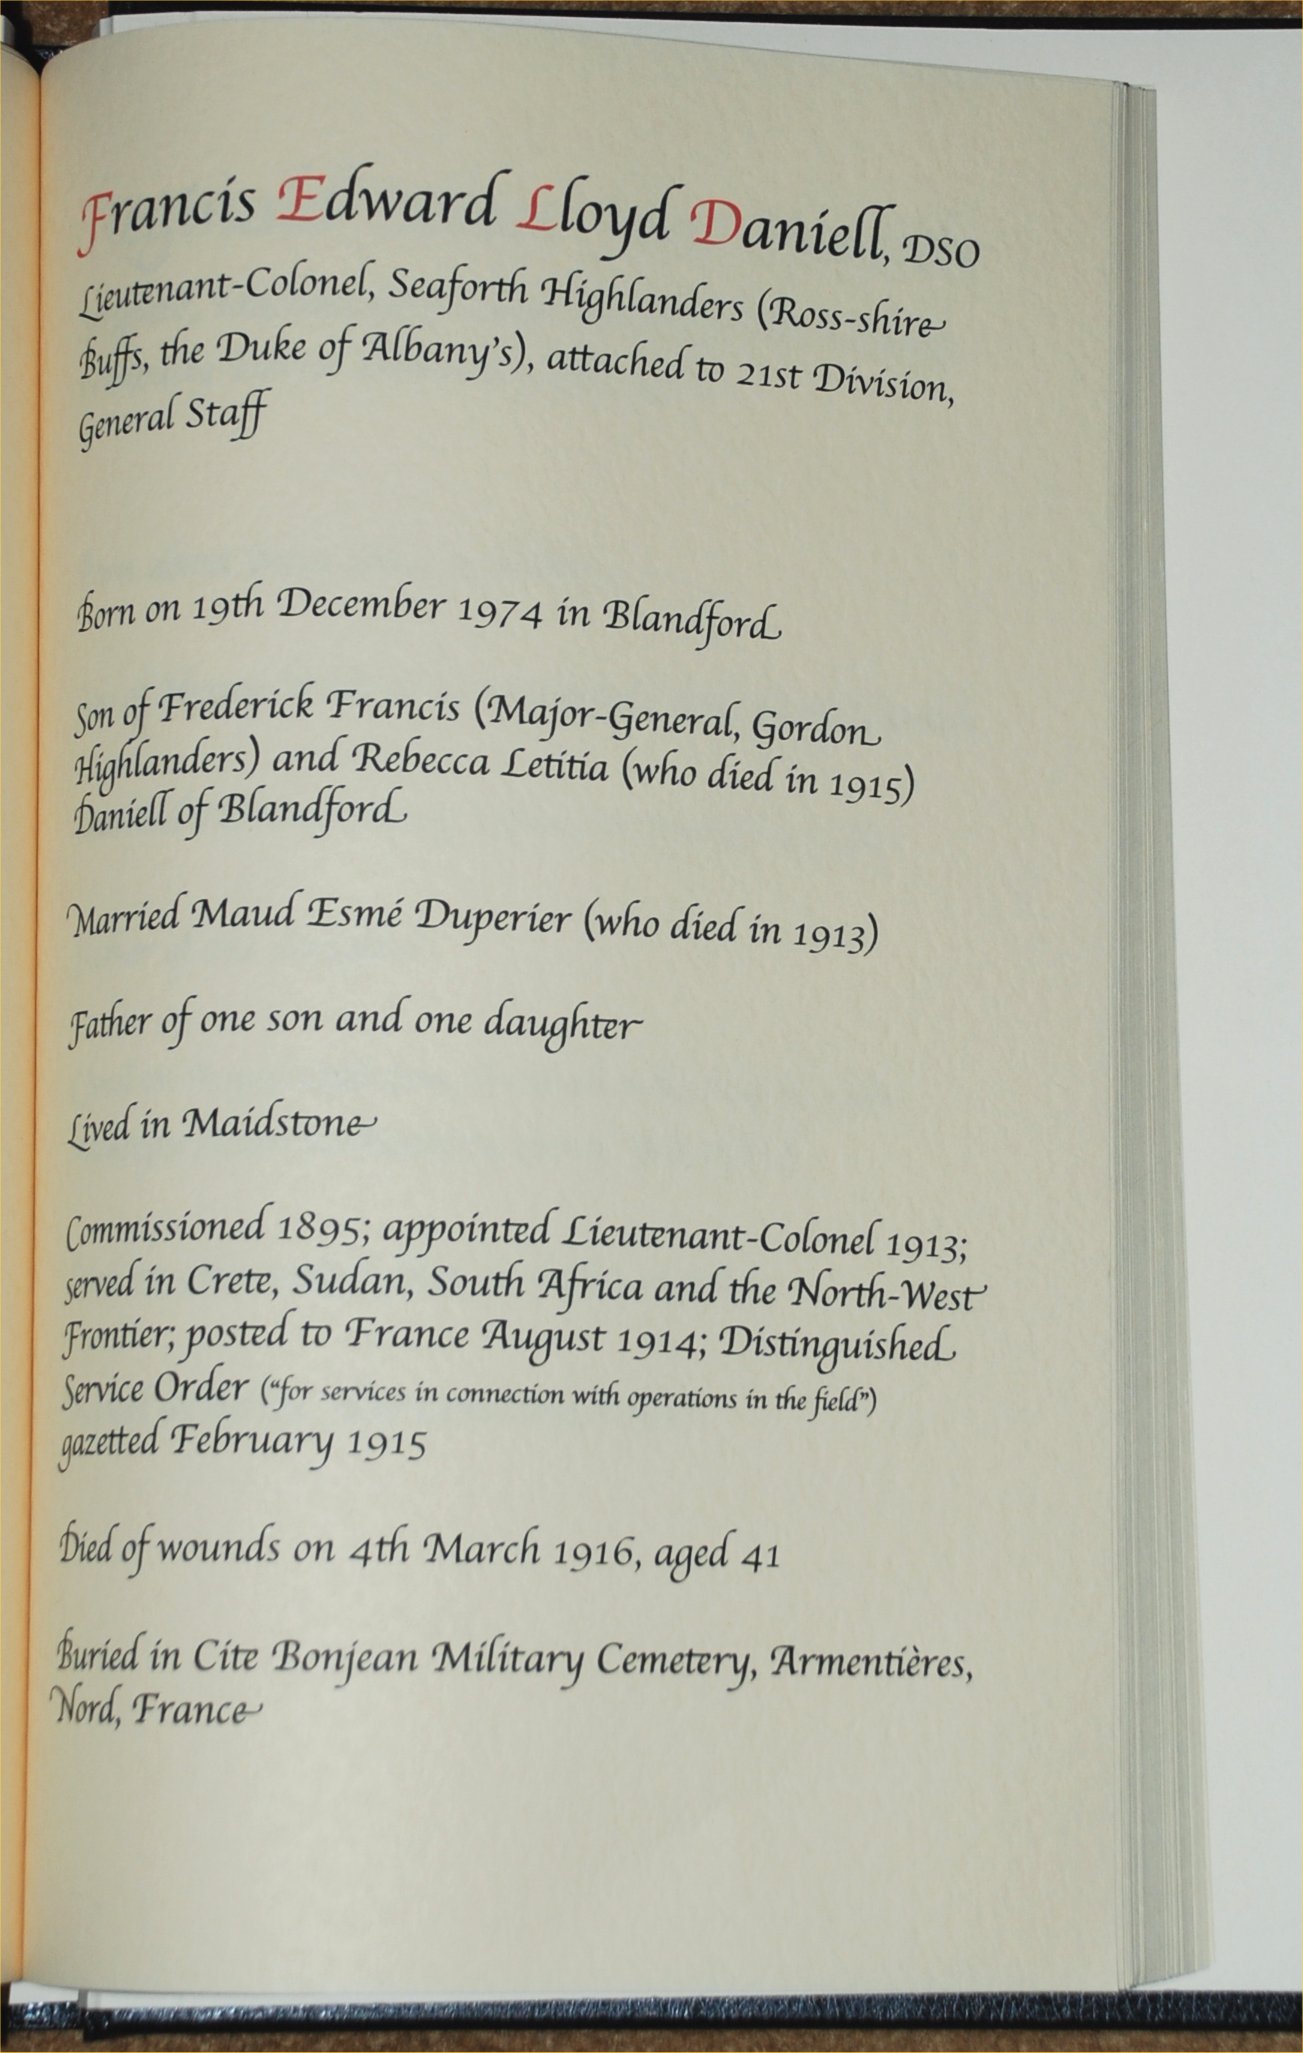 Francis Edward Lloyd Daniell, DSO
Lieutenant-Colonel, Seaforth Highlanders (Ross-shire
Buffs, the Duke of Albany's), attached to 21st Division,
General Staff
Born on 19th December 1974 in Blandford
Son of Frederick Francis (Major-General, Gordon
Highlanders) and Rebecca Letitia (who died in 1915)
Daniell of Blandford
Married Maud Esmé Duperier (who died in 1913)
Father of one son and one daughter
Lived in Maidstone
Commissioned 1895; appointed Lieutenant-Colonel 1913;
served in Crete, Sudan, South Africa and the North-West
Frontier; posted to France August 1914; Distinguished
Service Order (“for services in connection with operations in the field”)
gazetted February 1915
Died of wounds on 4th March 1916, aged 41
Buried in Cite Bonjean Military Cemetery, Armentières,
Nord, France